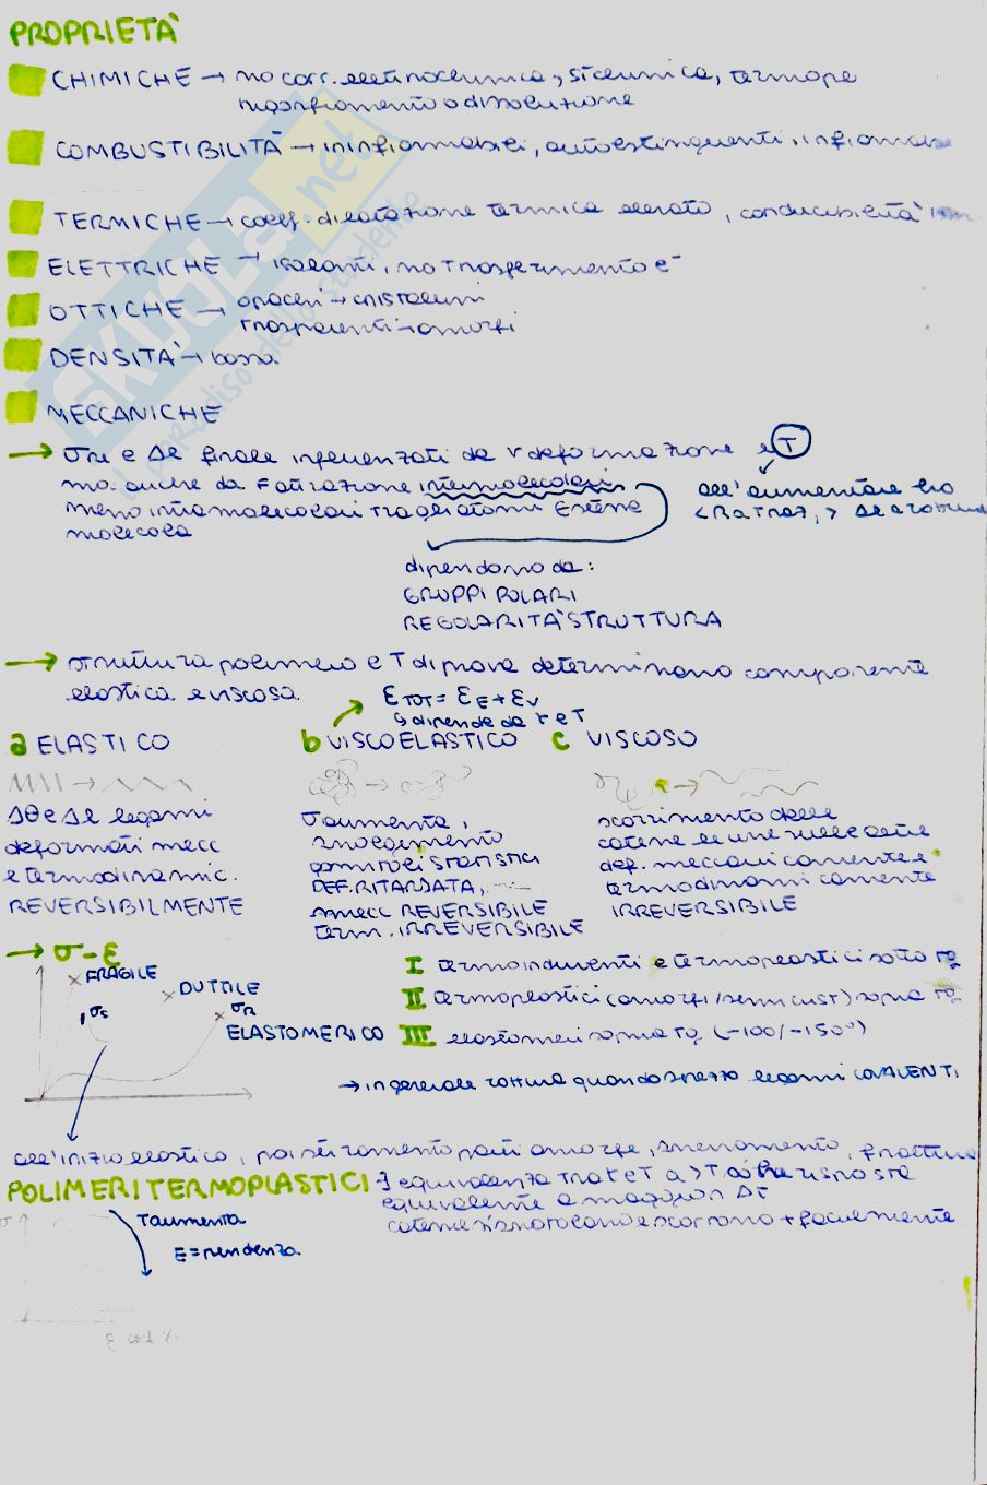 PROPRIETÀ
CHIMICHE → no corr. elettrochimica, sì chimica, termope
rigonfiamento o dissoluzione
COMBUSTIBILITÀ → ininfiammabili, autoestinguenti, infiammab
TERMICHE → coeff. dilatazione termica elevato, conducibilità
ELETTRICHE → isolanti, no trasferimento e⁻
OTTICHE → opachi → cristallini
trasparenti → amorfi
DENSITÀ → bassa
MECCANICHE
SKUOLA.net
il paradiso dello studente
→ σR e Δl finale influenzati da v deformazione e T
ma anche da forza/azione intermolecolari
meno intramolecolari tra gli atomi
molecola
all'aumentare ho
dipendono da:
GRUPPI POLARI
REGOLARITÀ STRUTTURA
→ struttura polimero e T di prova determinano componente
elastica e viscosa
εTOT = εE + εV
↳ dipende da t e T
a ELASTICO
b VISCOELASTICO
c VISCOSO
Δθ e Δl legami
deformati mecc
e termodinamic.
REVERSIBILMENTE
σ aumenta,
snolgimento
gomitoli statistici
DEF. RITARDATA,
mecc REVERSIBILE
term. IRREVERSIBILE
scorrimento delle
catene le une sulle altre
def. meccanicamente e
termodinamicamente
IRREVERSIBILE
→ σ-ε
FRAGILE
DUTTILE
σs
σR
ELASTOMERICO
I termoindurenti e termoplastici sotto Tg
II termoplastici (amorfi/semicrist) sopra Tg
III elastomeri sopra Tg (-100/-150°)
→ in generale rottura quando spezzo legami COVALENTI
all'inizio elastico, poi stiramento parti amorfe, snervamento, frattura
POLIMERI TERMOPLASTICI
∃ equivalenza tra t e T a > T ho risposta
equivalente a maggior Δt
catene si snodano e scorrono + facilmente
T aumenta
E = pendenza
σ